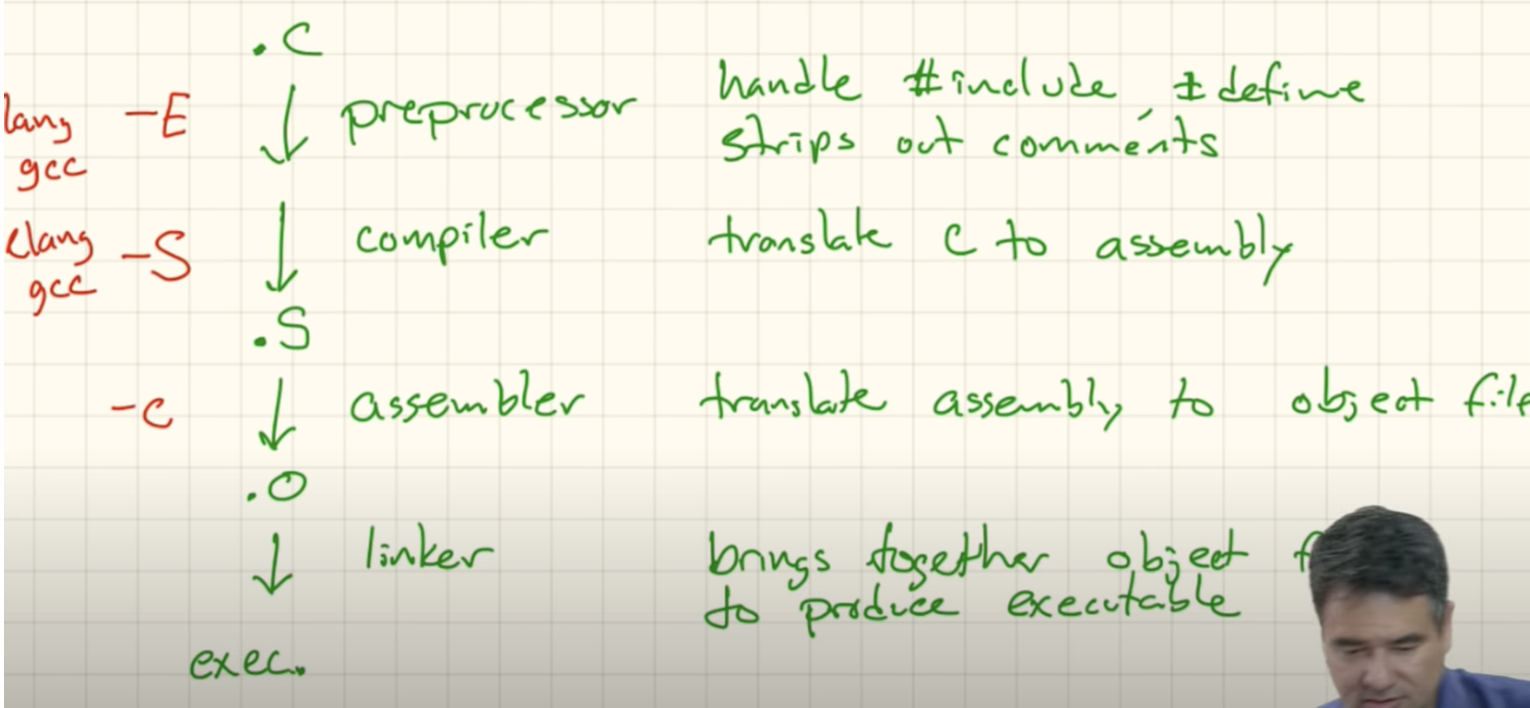 .C
lang -E preprocessor handle #include, #define
gcc strips out comments
clang -S compiler translate C to assembly
gcc
.S
-c assembler translate assembly to object file
.O
linker brings together object
to produce executable
exec.